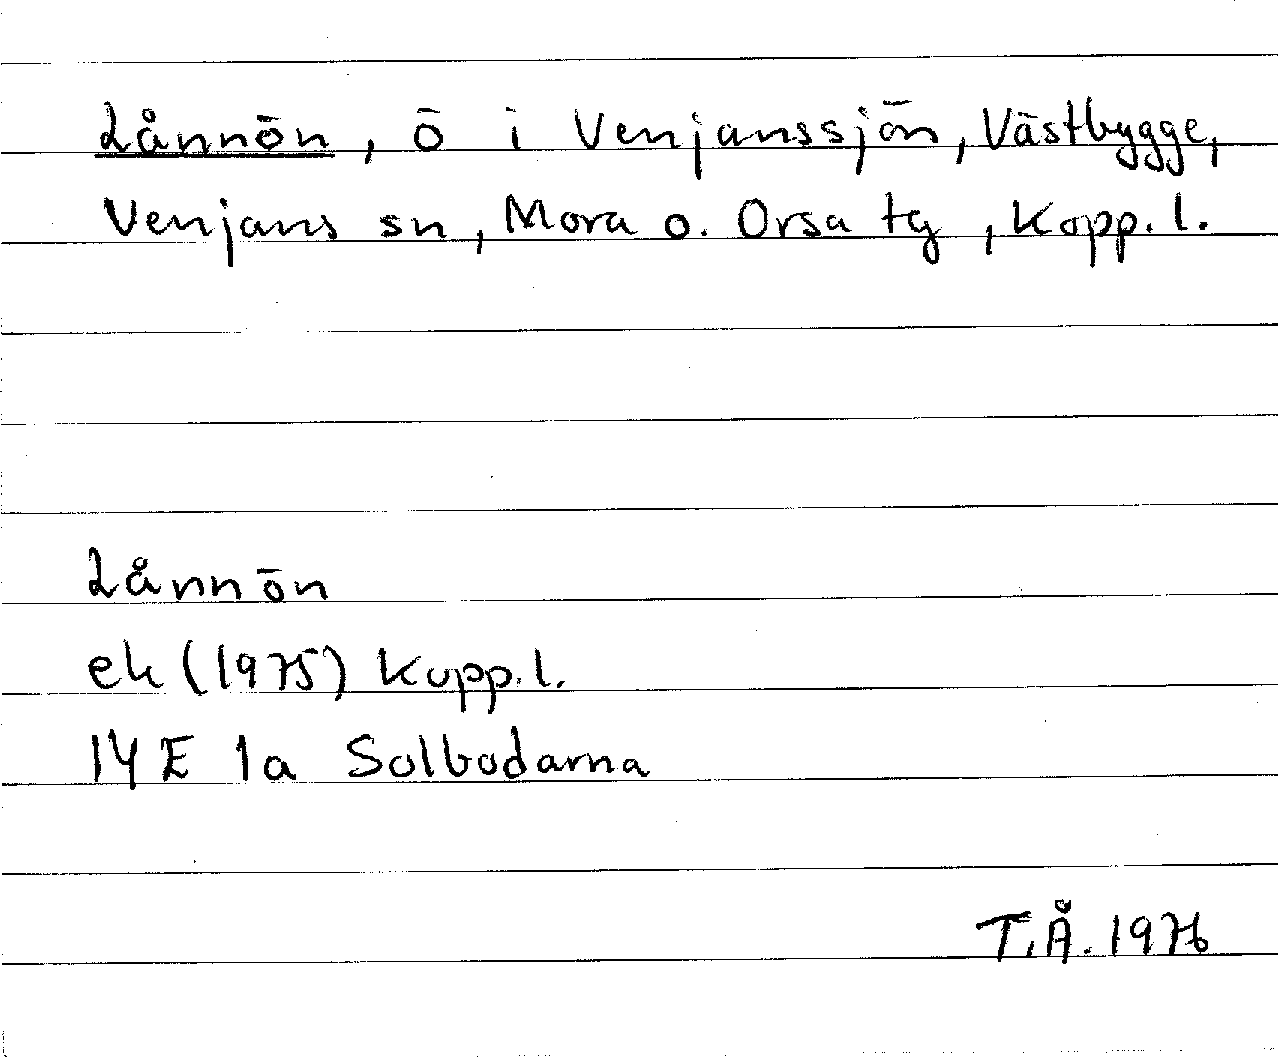 Lånnön, ö i Venjanssjön, Västbygge,
Venjans sn, Mora o. Orsa tg, Kopp. l.
Lånnön
ek (1975) Kopp. l.
14 E 1a Solbodarna
T.Å. 1976